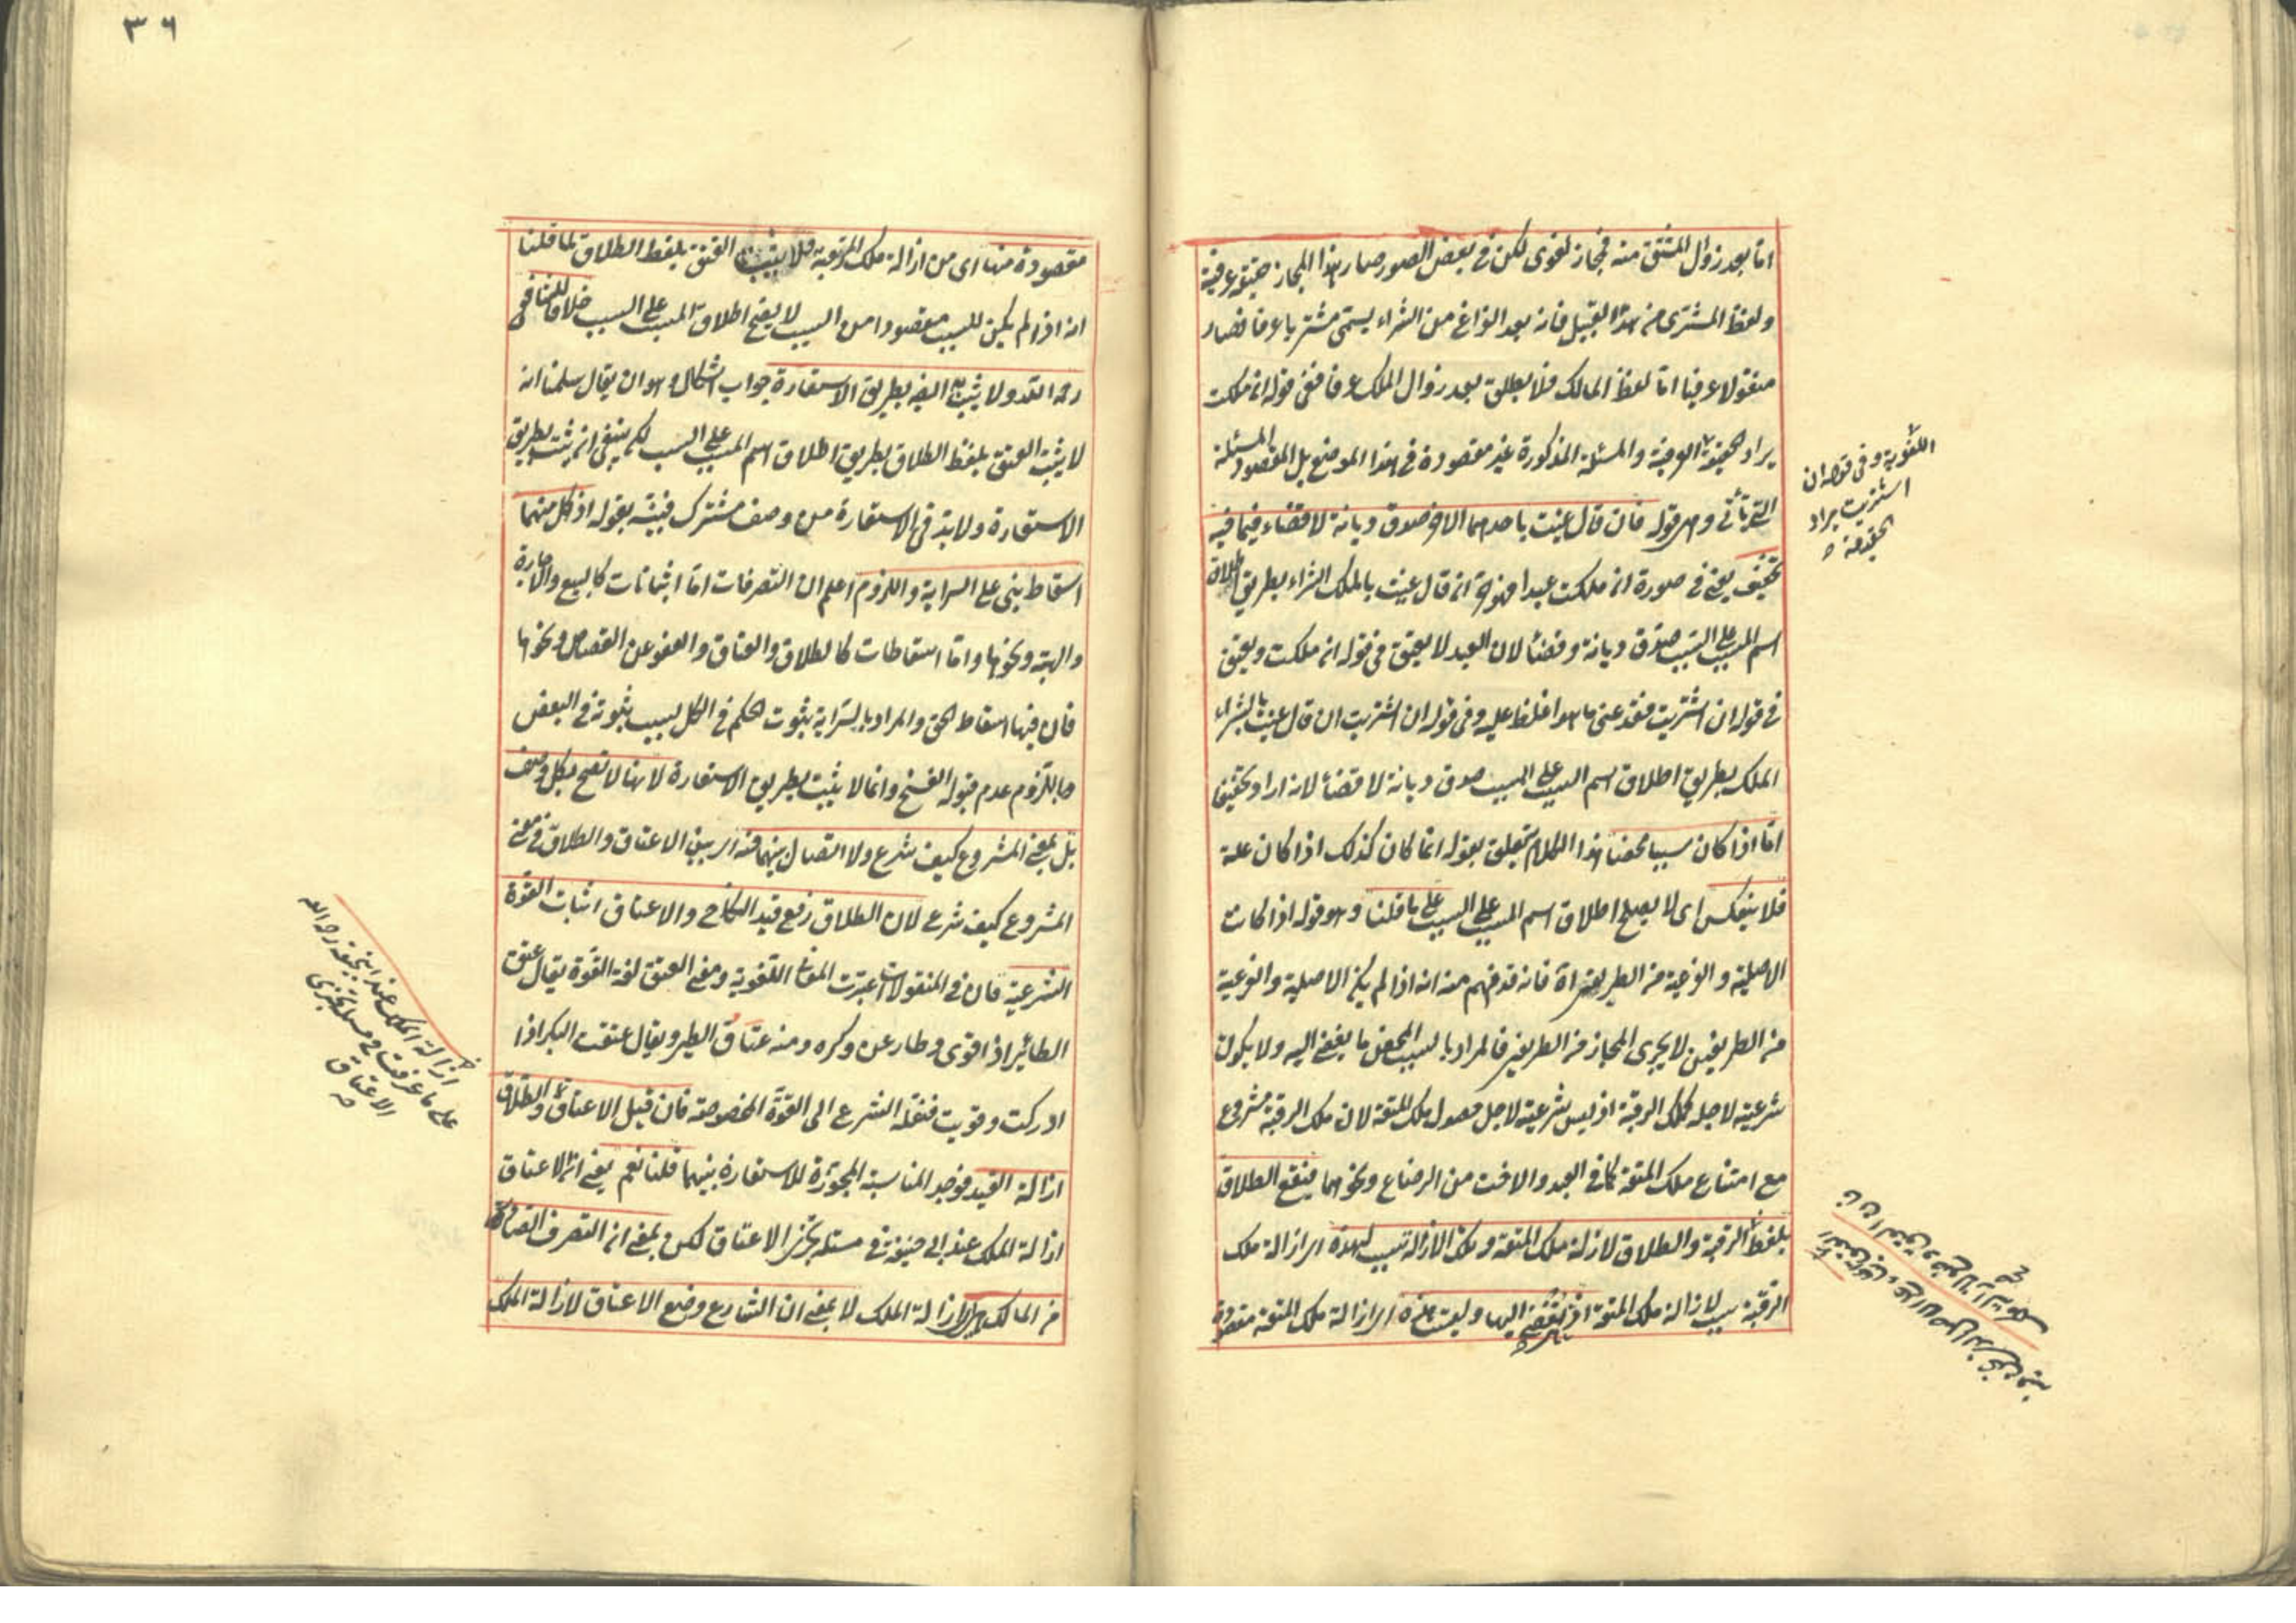 اما بعد زوال المشتق منه فمجاز لغوى لكن فى بعض الصور صار هذا المجاز حقيقة عرفية
ولفظ المشترى من هذا القبيل فانه بعد الفراغ من الشراء يسمى مشتريا عرفا فصار
منقولا عرفيا اما لفظ المالك فلا يطلق بعد زوال الملك عرفا ففى قوله ان ملكت
يراد الحقيقة العرفية والمسئلة المذكورة غير مقصودة فى هذا الموضع بل المقصود المسئلة
التى تأتى وهى قوله فان قال عنيت باحدهما الاخر صدق ديانة لا قضاء فيما فيه
تخفيف يعنى فى صورة ان ملكت عبدا فهو حر ان قال عنيت بالملك الشراء بطريق اطلاق
اسم المسبب على السبب صدق ديانة وقضاء لان العبد لا يعتق فى قوله ان ملكت ويعتق
فى قوله ان اشتريت فقد عنى ما هو اغلظ عليه وفى قوله ان اشتريت ان قال عنيت بالشراء
الملك بطريق اطلاق اسم السبب على المسبب صدق ديانة لا قضاء لانه اراد تخفيفا
اما اذا كان سببا محضا هذا الكلام يتعلق بقوله انما كان كذلك اذا كان علة
فلا ينعكس اى لا يصح اطلاق اسم المسبب على السبب على ما قلنا وهو قوله اذا كانت
الاصلية والفرعية من الطرفين اه فانه قد فهم منه انه اذا لم يكن الاصلية والفرعية
من الطرفين لا يجرى المجاز من الطرفين فالمراد بالسبب المحض ما يفضى اليه ولا يكون
شرعيته لاجله كملك الرقبة اذ ليس شرعيته لاجل حصول ملك المتعة لان ملك الرقبة مشروع
مع امتناع ملك المتعة كما فى العبد والاخت من الرضاع ونحوهما فيقع الطلاق
بلفظ الرقبة والطلاق لازلة ملك المتعة وتلك الازالة سبب لهذه اى ازالة ملك
الرقبة سبب لازالة ملك المتعة اذ تفضى اليها وليست هذه اى ازالة ملك المتعة مقصودة
اللغوية وفى قوله ان
اشتريت يراد
الحقيقة
٣٦
مقصودة منها اى من ازالة ملك الرقبة فلا يثبت العتق بلفظ الطلاق لما قلنا
انه اذا لم يكن المسبب مقصودا من السبب لا يصح اطلاق المسبب على السبب خلافا للشافعى
رحمه الله ولا يثبت ايضا بطريق الاستعارة جواب اشكال وهو ان يقال سلمنا انه
لا يثبت العتق بلفظ الطلاق بطريق اطلاق اسم المسبب على السبب لكن ينبغى ان يثبت بطريق
الاستعارة ولا بد فى الاستعارة من وصف مشترك فبينه بقوله اذ كل منهما
اسقاط بنى على السراية واللزوم اعلم ان التصرفات اما اثباتات كالبيع والاجارة
والهبة ونحوها واما اسقاطات كالطلاق والعتاق والعفو عن القصاص ونحوها
فان فيها اسقاط الحق والمراد بالسراية ثبوت الحكم فى الكل بسبب ثبوته فى البعض
وباللزوم عدم قبوله الفسخ وانما لا يثبت بطريق الاستعارة لانها لا تصح بكل وصف
بل بمعنى المشروع كيف شرع ولا اتصال بينهما فيه اى بين الاعتاق والطلاق فى معنى
المشروع كيف شرع لان الطلاق رفع قيد النكاح والاعتاق اثبات القوة
الشرعية فان فى المنقولات اعتبرت المعانى اللغوية ومعنى العتق لغة القوة يقال عتق
الطائر اذا قوى وطار عن وكره ومنه عتاق الطير ويقال عتقت البكر اذا
ادركت وقويت فنقله الشرع الى القوة المخصوصة فان قيل الاعتاق والطلاق
ازالة القيد فوجد المناسبة المجوزة للاستعارة بينهما قلنا نعم يعنى ان الاعتاق
ازالة الملك عند ابى حنيفة فى مسئلة تجزى الاعتاق لكن بمعنى ان التصرف الصادر
من المالك هو ازالة الملك لا بمعنى ان الشارع وضع الاعتاق لازالة الملك
ازالة الملك عند ابى حنيفة رحمه الله
على ما عرفت فى مسئلة تجزى
الاعتاق